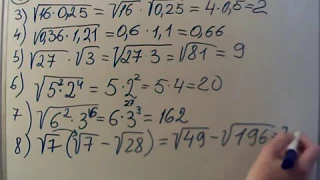 3) √16·0,25 = √16 · √0,25 = 4·0,5 = 2
4) √0,36·1,21 = 0,6·1,1 = 0,66
5) √27 · √3 = √27·3 = √81 = 9
6) √5²·2⁴ = 5·2² = 5·4 = 20
7) √6²·3⁶ = 6·3³ = 162
27
8) √7 (√7 − √28) = √49 − √196 =